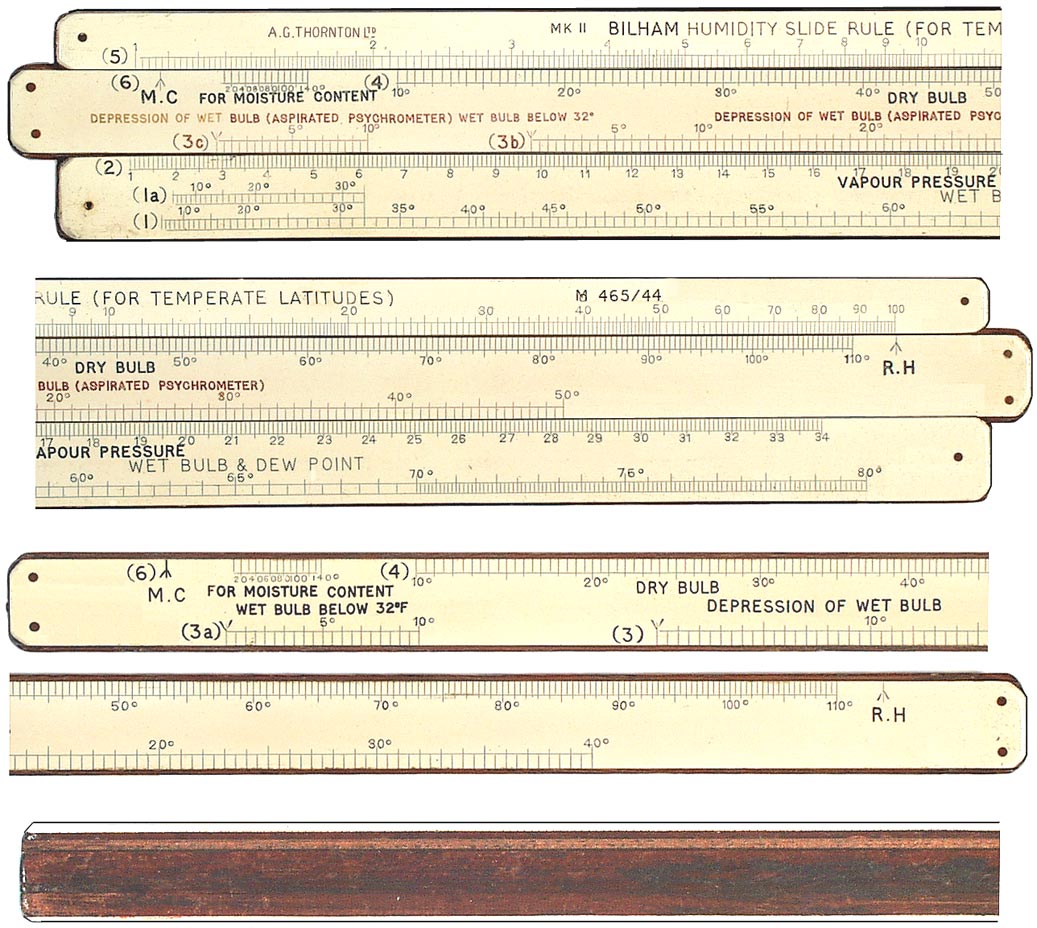 A.G. THORNTON LTD MK II BILHAM HUMIDITY SLIDE RULE (FOR TEM
(5) 1 2 3 4 5 6 7 8 9 10
(6) 20406080100 140° (4) 10° 20° 30° 40° 50
M.C FOR MOISTURE CONTENT DRY BULB
DEPRESSION OF WET BULB (ASPIRATED PSYCHROMETER) WET BULB BELOW 32° DEPRESSION OF WET BULB (ASPIRATED PSYC
(3c) 5° 10° (3b) 5° 10° 20°
(2) 1 2 3 4 5 6 7 8 9 10 11 12 13 14 15 16 17 18 19 20
VAPOUR PRESSURE
(1a) 10° 20° 30° WET B
(1) 10° 20° 30° 35° 40° 45° 50° 55° 60°
RULE (FOR TEMPERATE LATITUDES) M 465/44
9 10 20 30 40 50 60 70 80 90 100
40° 50° 60° 70° 80° 90° 100° 110°
DRY BULB R.H
BULB (ASPIRATED PSYCHROMETER)
20° 30° 40° 50°
17 18 19 20 21 22 23 24 25 26 27 28 29 30 31 32 33 34
APOUR PRESSURE
WET BULB & DEW POINT
60° 65° 70° 75° 80°
(6) 20406080100 140° (4) 10° 20° 30° 40°
M.C FOR MOISTURE CONTENT DRY BULB
WET BULB BELOW 32°F DEPRESSION OF WET BULB
(3a) 5° 10° (3) 10°
50° 60° 70° 80° 90° 100° 110°
R.H
20° 30° 40°